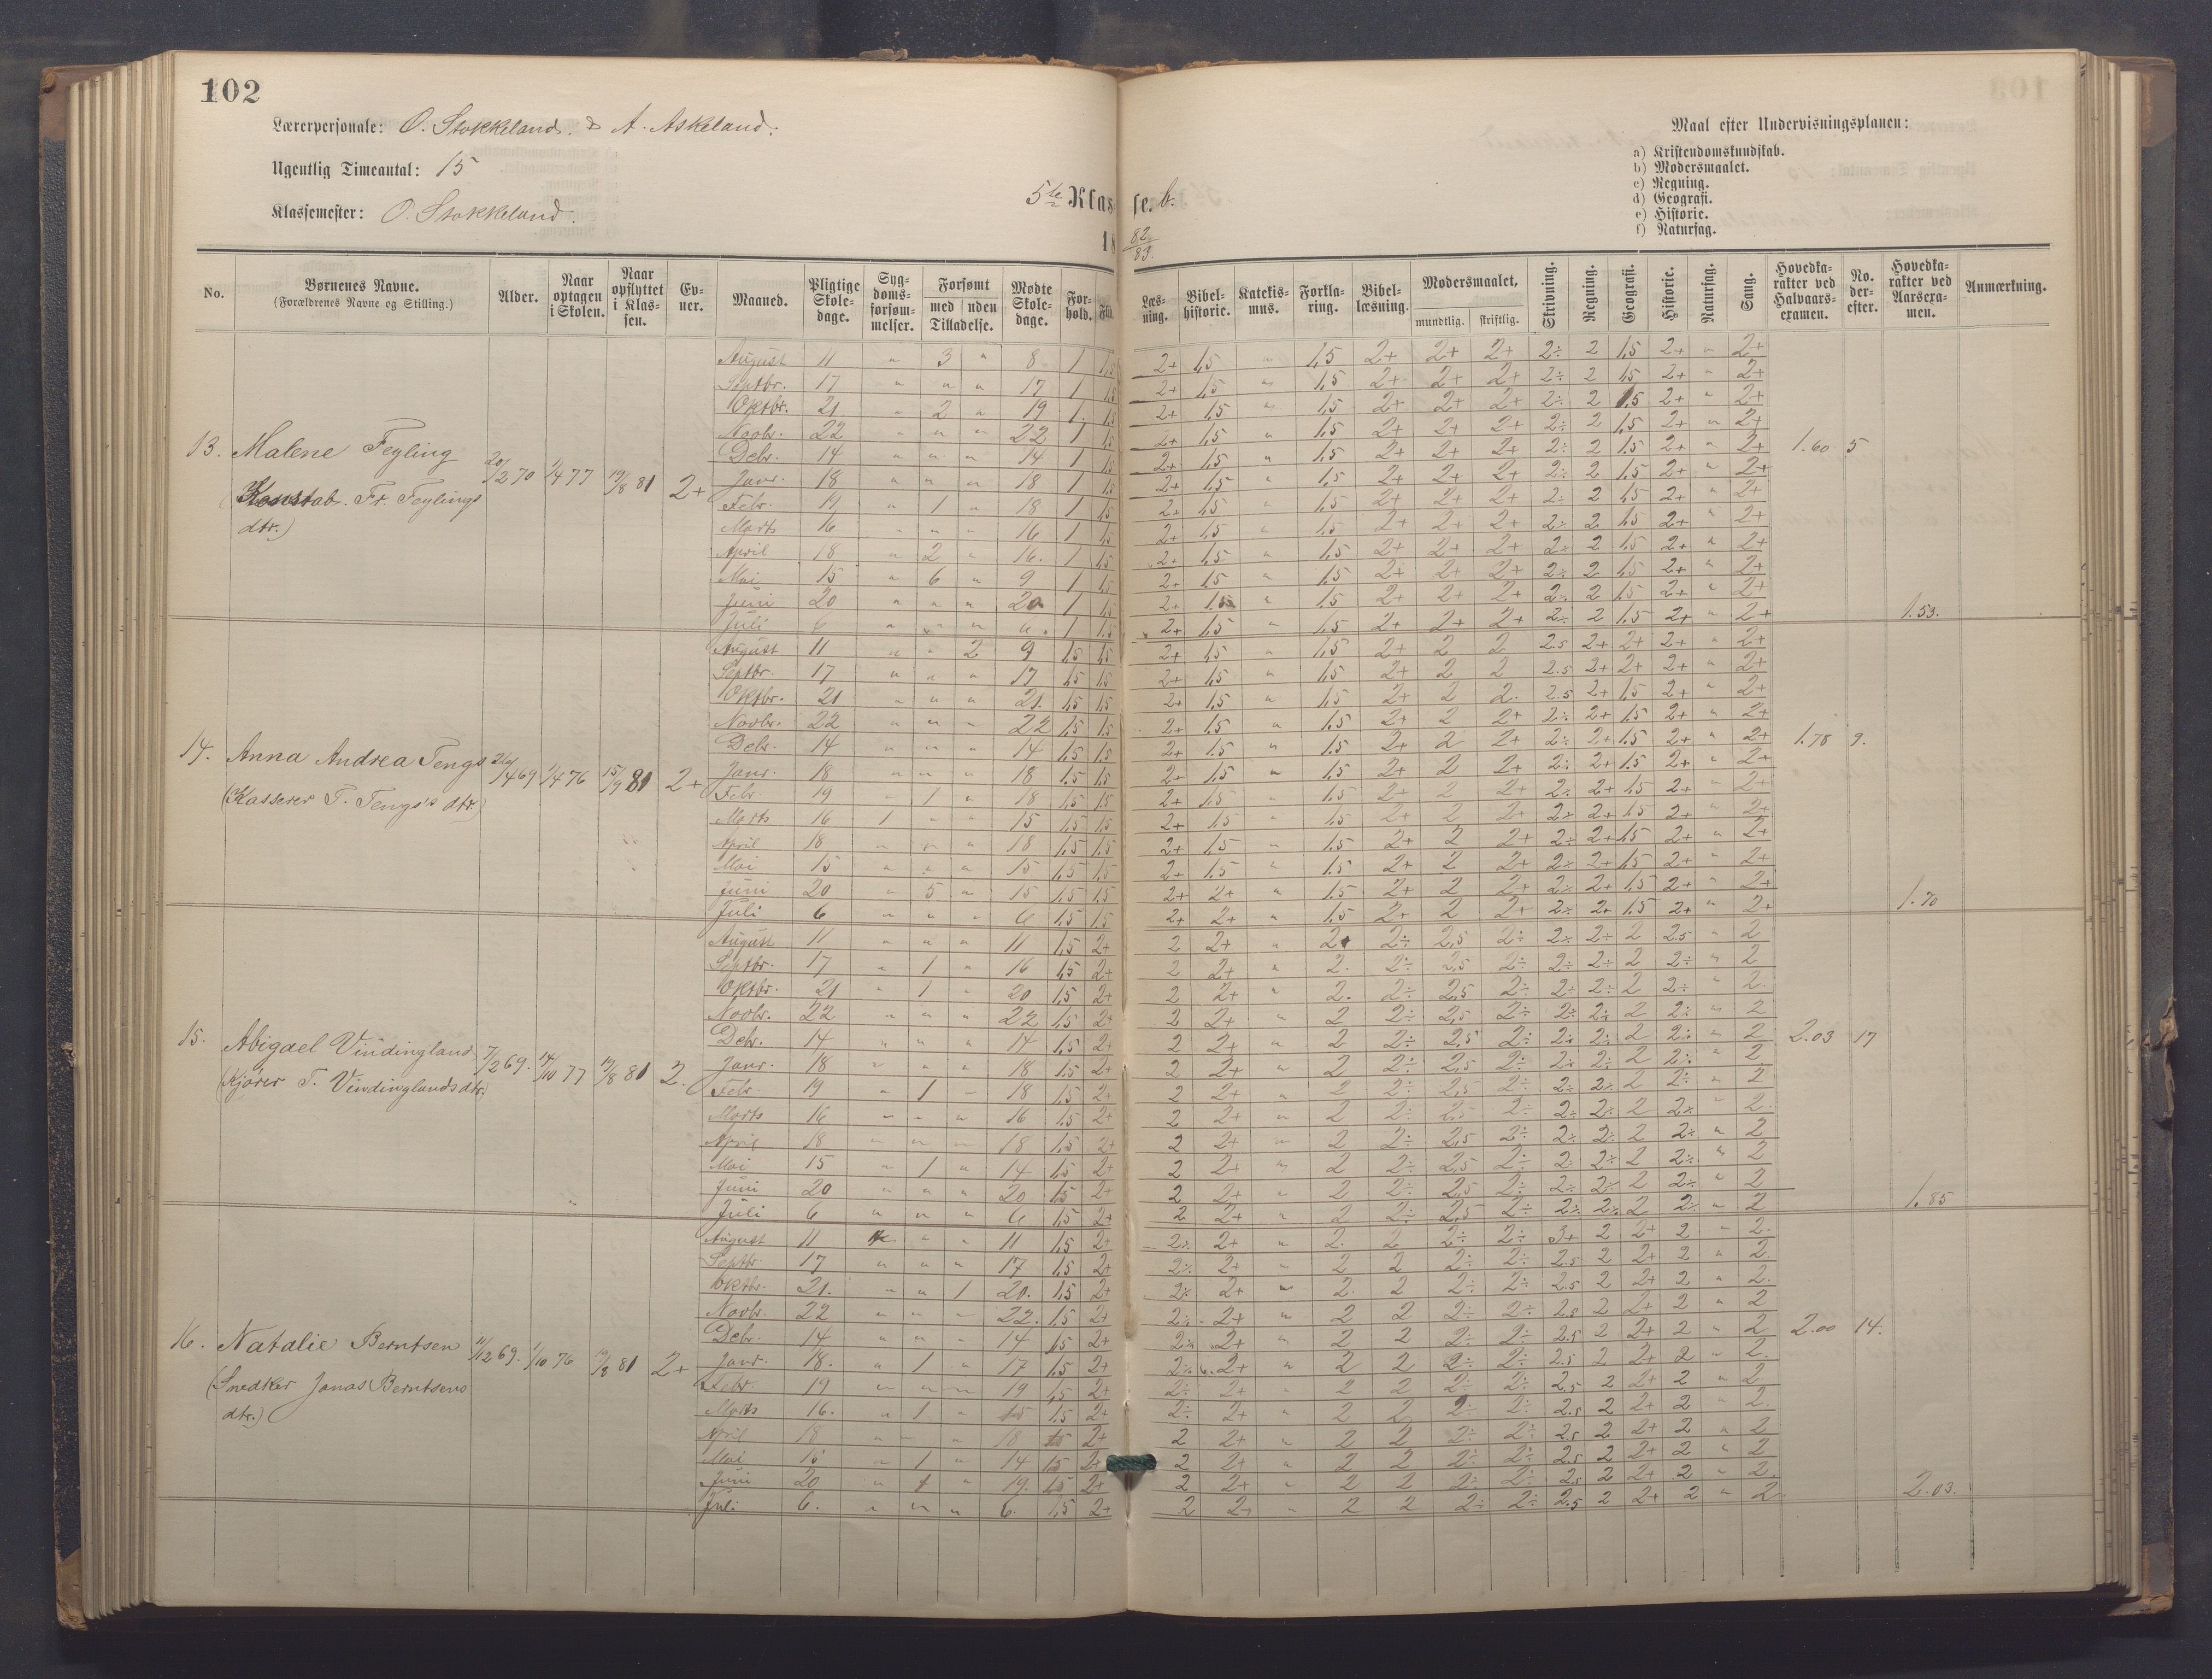 102
Lærerpersonale: O. Stokkeland. & A. Askeland.
Ugentlig Timeantal: 15
Klassemester: O. Stokkeland.
5te Klasse. b.
18 82/83.
Maal efter Undervisningsplanen:
a) Kristendomskundskab.
b) Modersmaalet.
c) Regning.
d) Geografi.
e) Historie.
f) Naturfag.
No. | Børnenes Navne. (Forældrenes Navne og Stilling.) | Alder. | Naar optagen i Skolen. | Naar opflyttet i Klassen. | Evner. | Maaned. | Pligtige Skoledage. | Sygdomsforsømmelser. | Forsømt med uden Tilladelse. | Mødte Skoledage. | Forhold. | Flid. | Læsning. | Bibelhistorie. | Katekismus. | Forklaring. | Bibellæsning. | Modersmaalet, mundtlig. skriftlig. | Skrivning. | Regning. | Geografi. | Historie. | Naturfag. | Sang. | Hovedkarakter ved Halvaarsexamen. | No. derefter. | Hovedkarakter ved Aarsexamen. | Anmærkning.
13. Malene Feyling
(Konstab. Fr. Feylings
dtr.)
20/2 70 1/4 77 19/8 81 2+
August 11 " 3 " 8 1 1,5 2+ 1,5 " 1,5 2+ 2+ 2+ 2÷ 2 1,5 2+ " 2+
Septbr. 17 " " " 17 1 1,5 2+ 1,5 " 1,5 2+ 2+ 2+ 2÷ 2 1,5 2+ " 2+
Oktbr. 21 " 2 " 19 1 1,5 2+ 1,5 " 1,5 2+ 2+ 2+ 2÷ 2 1,5 2+ " 2+
Novbr. 22 " " " 22 1 1,5 2+ 1,5 " 1,5 2+ 2+ 2+ 2÷ 2 1,5 2+ " 2+
Debr. 14 " " " 14 1 1,5 2+ 1,5 " 1,5 2+ 2+ 2+ 2÷ 2 1,5 2+ " 2+ 1.60 5
Janr. 18 " " " 18 1 1,5 2+ 1,5 " 1,5 2+ 2+ 2+ 2÷ 2 1,5 2+ " 2+
Febr. 19 " 1 " 18 1 1,5 2+ 1,5 " 1,5 2+ 2+ 2+ 2÷ 2 1,5 2+ " 2+
Marts 16 " " " 16 1 1,5 2+ 1,5 " 1,5 2+ 2+ 2+ 2÷ 2 1,5 2+ " 2+
April 18 " 2 " 16. 1 1,5 2+ 1,5 " 1,5 2+ 2+ 2+ 2÷ 2 1,5 2+ " 2+
Mai 15 " 6 " 9 1 1,5 2+ 1,5 " 1,5 2+ 2+ 2+ 2÷ 2 1,5 2+ " 2+
Juni 20 " " " 20 1 1,5 2+ 1,5 " 1,5 2+ 2+ 2+ 2÷ 2 1,5 2+ " 2+
Juli 6 " " " 6. 1 1.5 2+ 1,5 " 1,5 2+ 2+ 2+ 2÷ 2 1,5 2+ " 2+ 1.53.
14. Anna Andrea Tengs
(Kasserer T. Tengs's dtr.)
1/4 76 15/9 81 2+
August 11 " " 2 9 1,5 1,5 2+ 1,5 " 1,5 2+ 2 2 2.5 2+ 2+ 2+ " 2+
Septbr. 17 " " " 17 1,5 1,5 2+ 1,5 " 1,5 2+ 2 2 2.5 2+ 2+ 2+ " 2+
Oktbr. 21 " " " 21. 1,5 1,5 2+ 1,5 " 1,5 2+ 2 2. 2.5 2+ 1,5 2+ " 2+
Novbr. 22 " " " 22 1,5 1,5 2+ 1.5 " 1.5 2+ 2 2+ 2÷ 2+ 1,5 2+ " 2+
Debr. 14 " " " 14 1,5 1,5 2+ 1.5 " 1.5 2+ 2 2+ 2÷ 2+ 1,5 2+ " 2+ 1.78 9.
Janr. 18 " " " 18 1.5 1.5 2+ 1,5 " 1,5 2+ 2 2+ 2÷ 2+ 1,5 2+ " 2+
Febr. 19 " 1 " 18 1,5 1.5 2+ 1,5 " 1.5 2+ 2 2+ 2÷ 2+ 1,5 2+ " 2+
Marts 16 1 " " 15 1,5 1,5 2+ 1,5 " 1.5 2+ 2 2+ 2÷ 2+ 1,5 2+ " 2+
April 18 " " " 18 1,5 1,5 2+ 1,5 " 1.5 2+ 2 2+ 2÷ 2+ 1,5 2+ " 2+
Mai 15 " " " 15 1,5 1,5 2+ 1.5 " 1.5 2+ 2 2+ 2÷ 2+ 1,5 2+ " 2+
Juni 20 " 5 " 15 1,5 1,5 2+ 2+ " 1.5 2+ 2 2+ 2÷ 2+ 1,5 2+ " 2+
Juli 6 " " " 6 1,5 1.5 2+ 2+ " 1.5 2+ 2 2+ 2÷ 2+ 1.5 2+ " 2+ 1.70
15. Abigael Vindingland
(Kjører T. Vindinglands dtr.)
7/2 69. 14/10 77 19/8 81 2.
August 11 " " " 11 1,5 2+ 2 2+ " 2+ 2÷ 2,5 2÷ 2÷ 2+ 2 2.5 " 2
Septbr. 17 " 1 " 16 1,5 2+ 2 2+ " 2. 2÷ 2,5 2÷ 2÷ 2÷ 2 2÷ " 2
Oktbr. 21 " 1 " 20 1,5 2+ 2 2+ " 2. 2÷ 2,5 2÷ 2÷ 2÷ 2 2÷ " 2.
Novbr. 22 " " " 22 1,5 2+ 2 2+ " 2 2÷ 2,5 2÷ 2÷ 2÷ 2 2÷ " 2
Debr. 14 " " " 14 1,5 2+ 2 2+ " 2 2÷ 2,5 2÷ 2÷ 2÷ 2 2÷ " 2 2.03 17
Janr. 18 " " " 18 1,5 2+ 2 2+ " 2 2÷ 2,5 2÷ 2÷ 2÷ 2 2÷ " 2
Febr. 19 " 1 " 18 1,5 2+ 2 2+ " 2 2÷ 2,5 2÷ 2÷ 2÷ 2 2÷ " 2
Marts 16 " " " 16 1,5 2+ 2 2+ " 2 2÷ 2.5 2÷ 2÷ 2÷ 2 2÷ " 2
April 18 " " " 18 1,5 2+ 2 2+ " 2 2÷ 2,5 2÷ 2÷ 2÷ 2 2÷ " 2
Mai 15 " 1 " 14 1,5 2+ 2 2+ " 2 2÷ 2,5 2÷ 2÷ 2÷ 2 2÷ " 2
Juni 20 " " " 20 1,5 2+ 2 2+ " 2 2÷ 2,5 2÷ 2÷ 2÷ 2 2÷ " 2
Juli 6 " " " 6 1,5 2+ 2 2+ " 2 2÷ 2,5 2÷ 2÷ 2÷ 2 2÷ " 2 1.85
16. Natalie Berntsen
Jonas Berntsens
dtr.)
11/12 69. 1/10 76 19/8 81 2+
August 11 " " 11 1,5 2+ 2÷ 2+ " 2. 2 2÷ 2÷ 3+ 2 2+ 2 " 2.
Septbr. 17 " " " 17 1,5 2+ 2÷ 2+ " 2 2 2÷ 2÷ 2.5 2 2+ 2 " 2.
Oktbr. 21. " " 1 20. 1,5 2+ 2÷ 2+ " 2. 2 2÷ 2÷ 2.5 2 2+ 2 " 2.
Novbr. 22 " " " 22. 1,5 2+ 2÷ 2+ " 2 2 2÷ 2÷ 2.5 2 2+ 2 " 2
Debr. 14 " " " 14 1,5 2+ 2÷ 2+ " 2 2 2÷ 2÷ 2.5 2 2+ 2 " 2 2.00 14.
Janr. 18. " 1 " 17 1,5 2+ 2÷ 2+ " 2 2 2÷ 2÷ 2.5 2 2+ 2 " 2.
Febr. 19 " " " 19 1,5 2+ 2÷ 2+ " 2 2 2÷ 2÷ 2.5 2 2+ 2 " 2
Marts 16. " 1 " 15 1,5 2+ 2÷ 2+ " 2 2 2÷ 2÷ 2.5 2 2+ 2 " 2.
April 18 " " " 18 1,5 2+ 2 2+ " 2 2 2÷ 2÷ 2.5 2 2+ 2 " 2
Mai 15 " 1 " 14 1,5 2+ 2 2+ " 2 2 2÷ 2÷ 2.5 2 2+ 2 " 2
Juni 20 " 1 " 19. 1,5 2+ 2 2+ " 2 2 2÷ 2÷ 2.5 2 2+ 2 " 2.
Juli 6. " " " 6. 1,5 2+ 2 2+ " 2 2 2÷ 2÷ 2.5 2 2+ 2 " 2. 2.03.